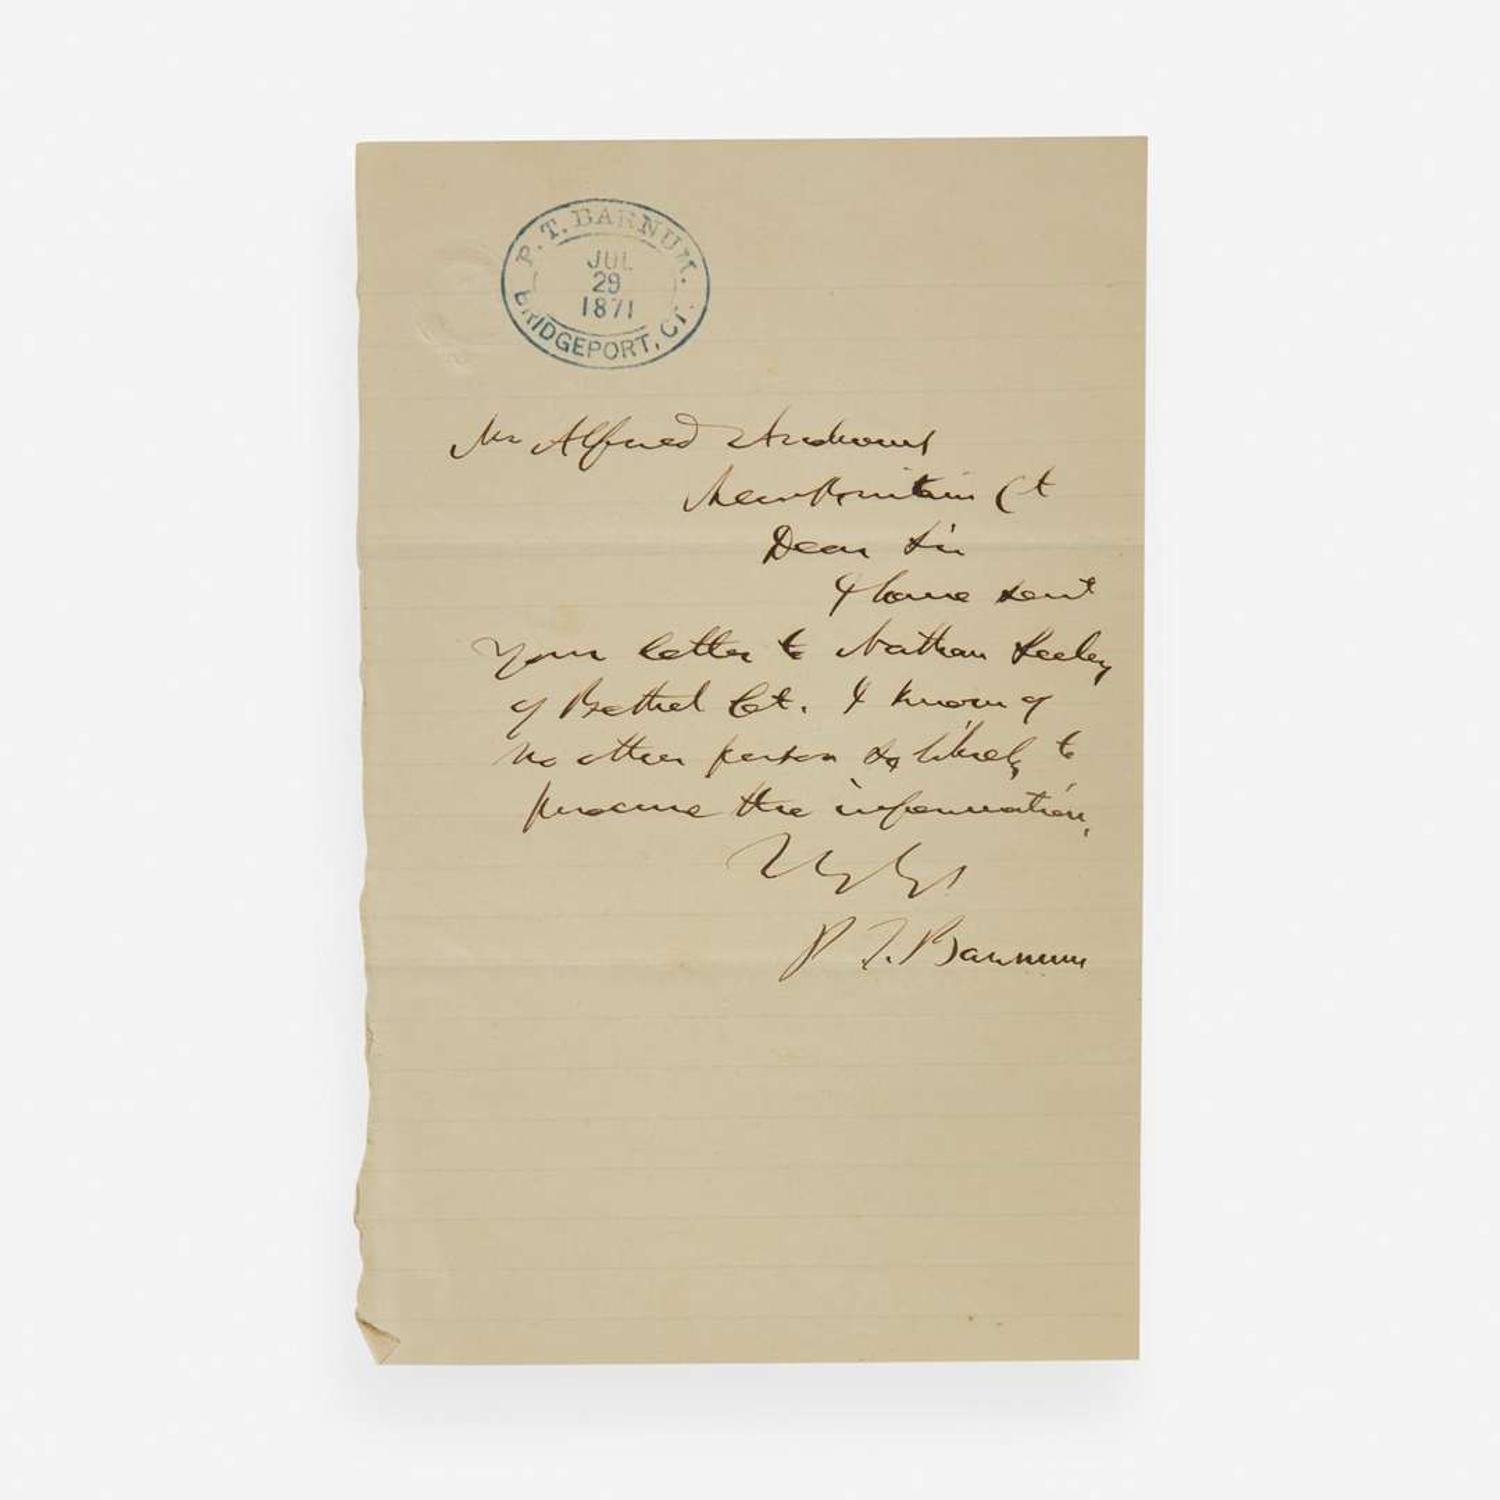 P. T. BARNUM.
JUL
29
1871
BRIDGEPORT, CT.
Mr Alfred Andrews
New Britain Ct
Dear Sir
I have sent
your letter to Nathan Seeley
of Bethel Ct. I know of
no other person so likely to
procure the information.
P. T. Barnum